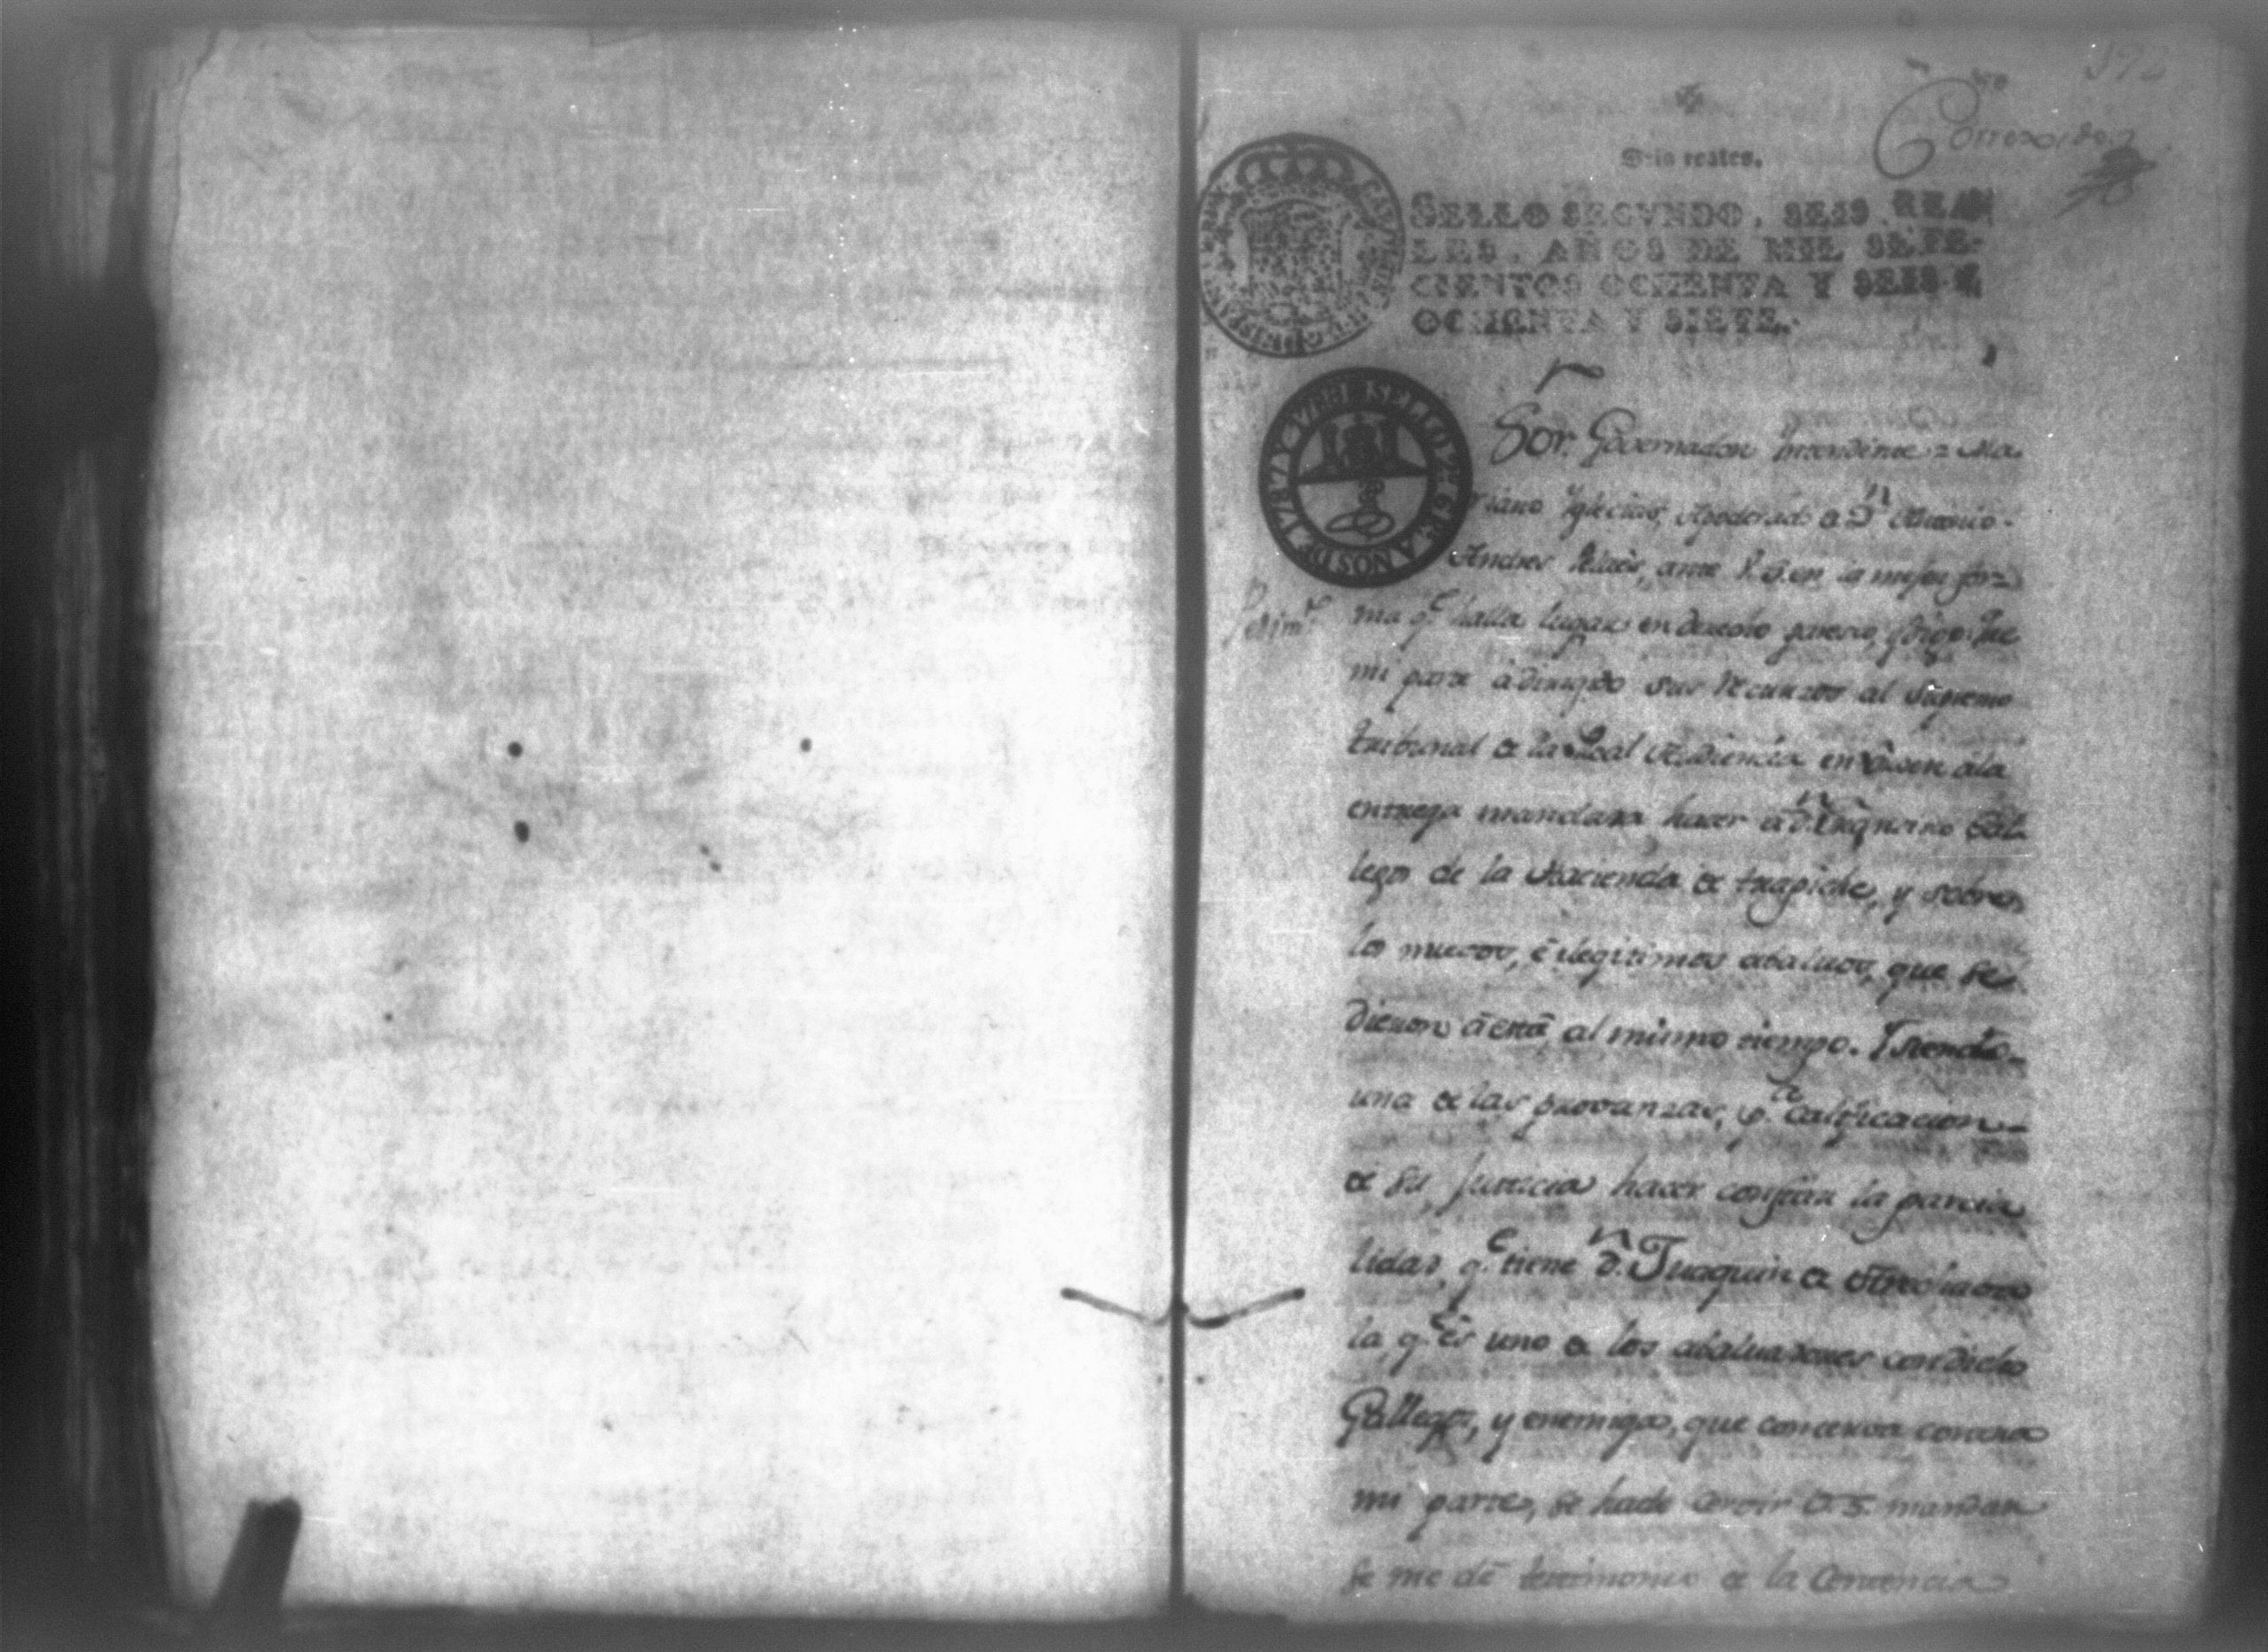 192
Corregido
Seis reales.
SELLO SEGVNDO, SEIS REA-
LES, AÑOS DE MIL SETE-
CIENTOS OCHENTA Y SEIS Y
OCHENTA Y SIETE.
Sor. Governador Intendente = Ma
riano Yglecias, Apoderado de Dn Antonio
Andres Pelaes, ante V.S. en la mejor for=
Pedimto
ma qe halla lugar en derecho paresco, y digo: Que
mi parte á dirigido sus recursos al Supremo
tribunal de la Real Audiencia en orden ala
entrega mandara hacer a dn Gal
legos de la Hacienda de trapiche, y sobre
los nuevos, é ilegitimos abaluos, que se
dieron á esta al mismo tiempo. Y siendo
una de las provanzas, pa calificacion
de su justicia hacer constar la parcia
lidad, qe tiene dn Juaquin de Strechaco
la, qe es uno de los abaluadores con dicho
Gallegos, y enemiga, que concerva contra
mi parte, se hade servir V.S. mandar
se me dé testimonio de la Centencia